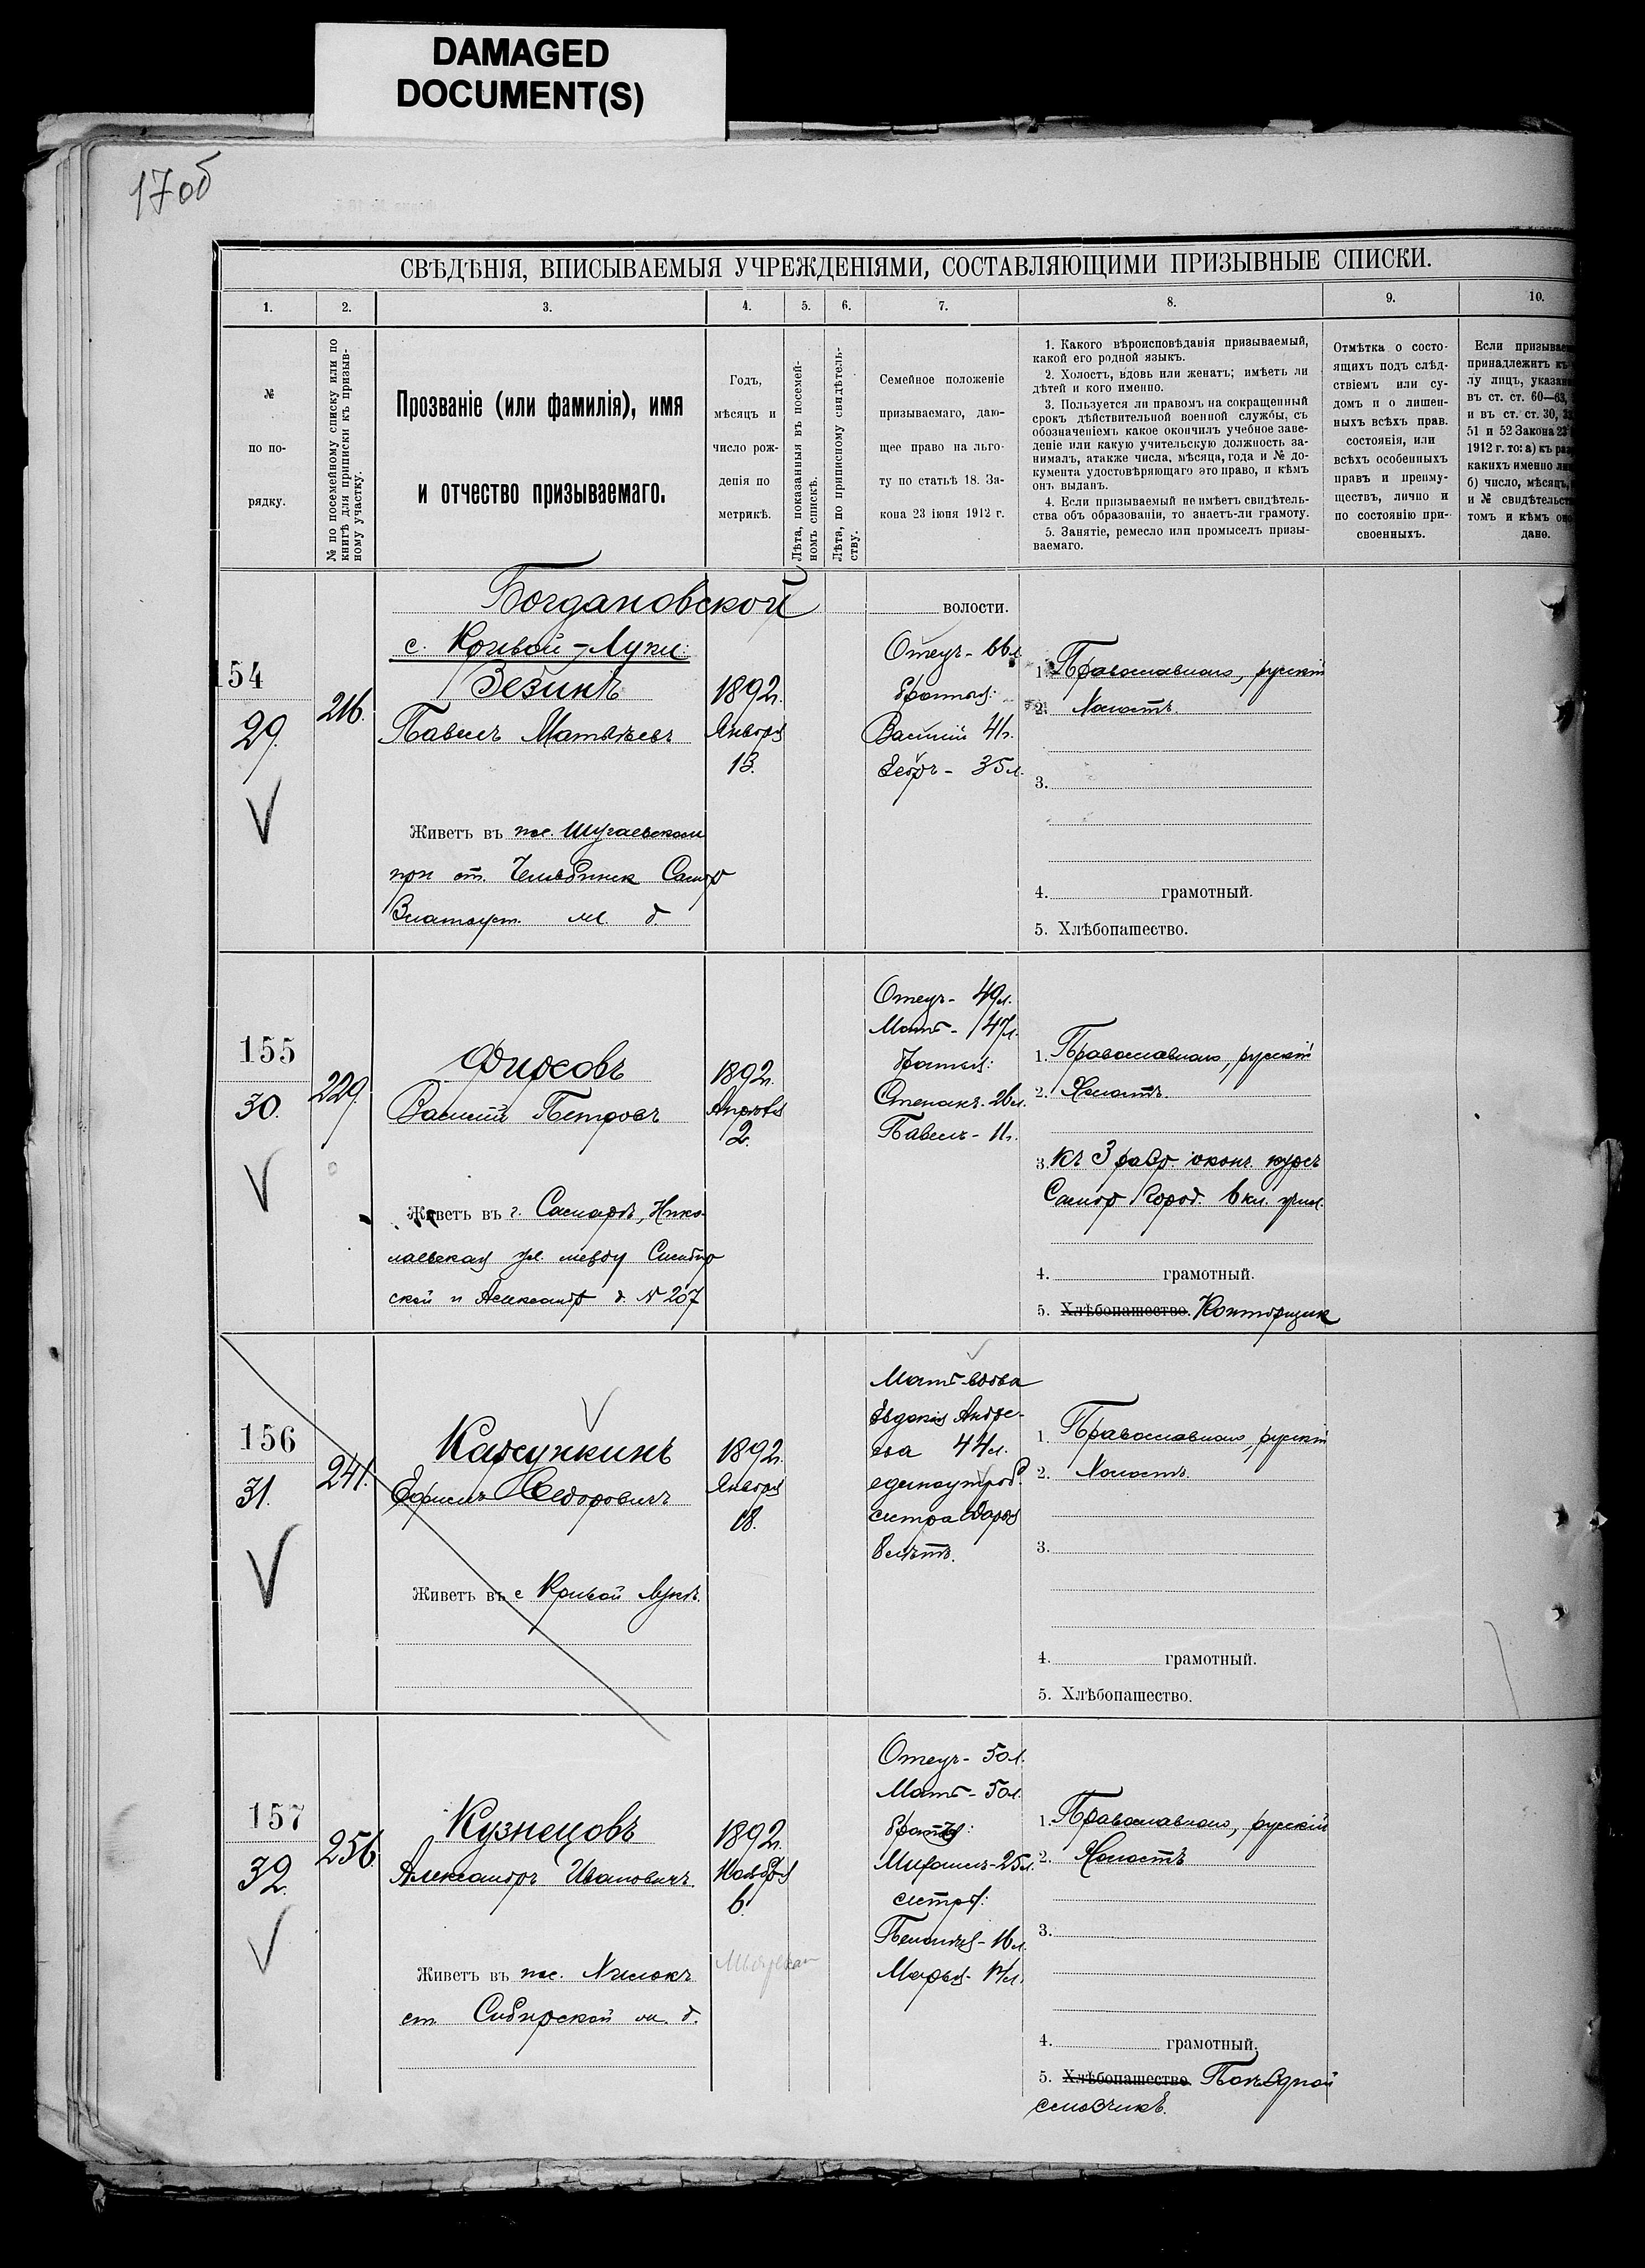 DAMAGED
DOCUMENT(S)
17об
СВѢДѢНІЯ, ВПИСЫВАЕМЫЯ УЧРЕЖДЕНІЯМИ, СОСТАВЛЯЮЩИМИ ПРИЗЫВНЫЕ СПИСКИ.
1. 2. 3. 4. 5. 6. 7. 8. 9. 10.
№
по по-
рядку.
№ по посемейному списку или по
книгѣ для приписки къ призыв-
ному участку.
Прозваніе (или фамилія), имя
и отчество призываемаго.
Годъ,
мѣсяцъ и
число рож-
денія по
метрикѣ.
Лѣта, показанныя въ посемей-
номъ спискѣ.
Лѣта, по приписному свидѣтель-
ству.
Семейное положеніе
призываемаго, даю-
щее право на льго-
ту по статьѣ 18. За-
кона 23 іюня 1912 г.
1. Какого вѣроисповѣданія призываемый,
какой его родной языкъ.
2. Холостъ, вдовъ или женатъ; имѣетъ ли
дѣтей и кого именно.
3. Пользуется ли правомъ на сокращенный
срокъ дѣйствительной военной службы, съ
обозначеніемъ какое окончилъ учебное заве-
деніе или какую учительскую должность за-
нималъ, атакже числа, мѣсяца, года и № до-
кумента удостовѣряющаго это право, и кѣмъ
онъ выданъ.
4. Если призываемый не имѣетъ свидѣтель-
ства объ образованіи, то знаетъ-ли грамоту.
5. Занятіе, ремесло или промыселъ призы-
ваемаго.
Отмѣтка о состо-
ящихъ подъ слѣд-
ствіемъ или су-
домъ и о лишен-
ныхъ всѣхъ прав.
состоянія, или
всѣхъ особенныхъ
правъ и преиму-
ществъ, лично и
по состоянію при-
своенныхъ.
Если призывае
принадлежитъ къ
лу лицъ, указан
въ ст. ст. 60—63,
и въ ст. ст. 30,
51 и 52 Закона 23
1912 г. то: а) къ
какихъ именно
б) число, мѣсяцъ,
и № свидѣтельст
томъ и кѣмъ
дано.
Богдановской волости.
с. Кривой-Луки
154
29.
216.
Зезинъ
Павелъ Матвѣевъ
1892г.
Января
13.
Отецъ - 66л.
братья:
Василій 41г.
Егоръ - 35л.
1. Православнаго, русскій
2. Холостъ.
3.
4. грамотный.
5. Хлѣбопашество.
Живетъ въ пос. Шугаевском
при ст. Челябинск Самар
Златоуст. ж. д.
155
30.
229.
Фирсовъ
Василій Петровъ
1892г.
Апрѣля
2.
Отецъ - 49л.
Мать - 47л.
братья:
Степанъ. 26л.
Павелъ - 11г.
1. Православнаго, русскій
2. Холостъ.
3. Къ 3 разр. оконч. курсъ
Самар Город. 6 кл. учил.
4. грамотный.
5. Хлѣбопашество. Конторщик
Живетъ въ г. Самарѣ, Нико-
лаевская ул. между Симбир
ской и Александр д. № 207
156
31.
241.
Карсункинъ
Ефимъ Ѳедоровичъ
1892г.
Января
18.
Мать-вдова
Евдокія Андре-
ева 44л.
единоутроб.
сестра Дарья
8 лѣтъ.
1. Православнаго, русскій
2. Холостъ.
3.
4. грамотный.
5. Хлѣбопашество.
Живетъ въ с Кривой Лукѣ.
157
32.
256.
Кузнецовъ
Александръ Ивановичъ.
1892г.
Ноября
6.
Отецъ - 50л.
Мать - 50л.
братья:
Михаилъ - 25л.
сестры:
Пелагея - 16л.
Марья -
1. Православнаго, русскій
2. Холостъ
3.
4. грамотный.
5. Хлѣбопашество Поѣздной
смазчикъ.
Живетъ въ пос. Хилокъ
ст. Сибирской ж. д.